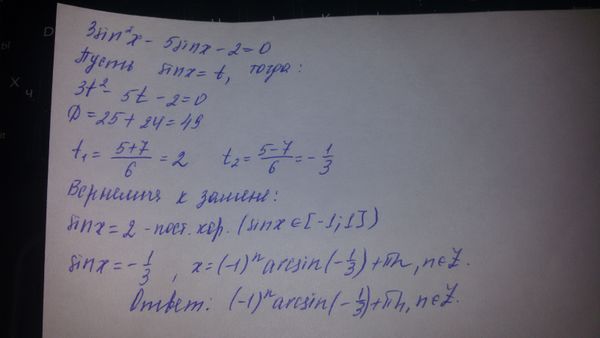 3sin²x - 5sinx - 2 = 0
Пусть sinx = t, тогда:
3t² - 5t - 2 = 0
D = 25 + 24 = 49
t₁ = (5+7)/6 = 2    t₂ = (5-7)/6 = -1/3
Вернемся к замене:
sinx = 2 - пост. кор. (sinx ∈ [-1; 1])
sinx = -1/3, x = (-1)ⁿ arcsin(-1/3) + πn, n ∈ Z.
Ответ: (-1)ⁿ arcsin(-1/3) + πn, n ∈ Z.